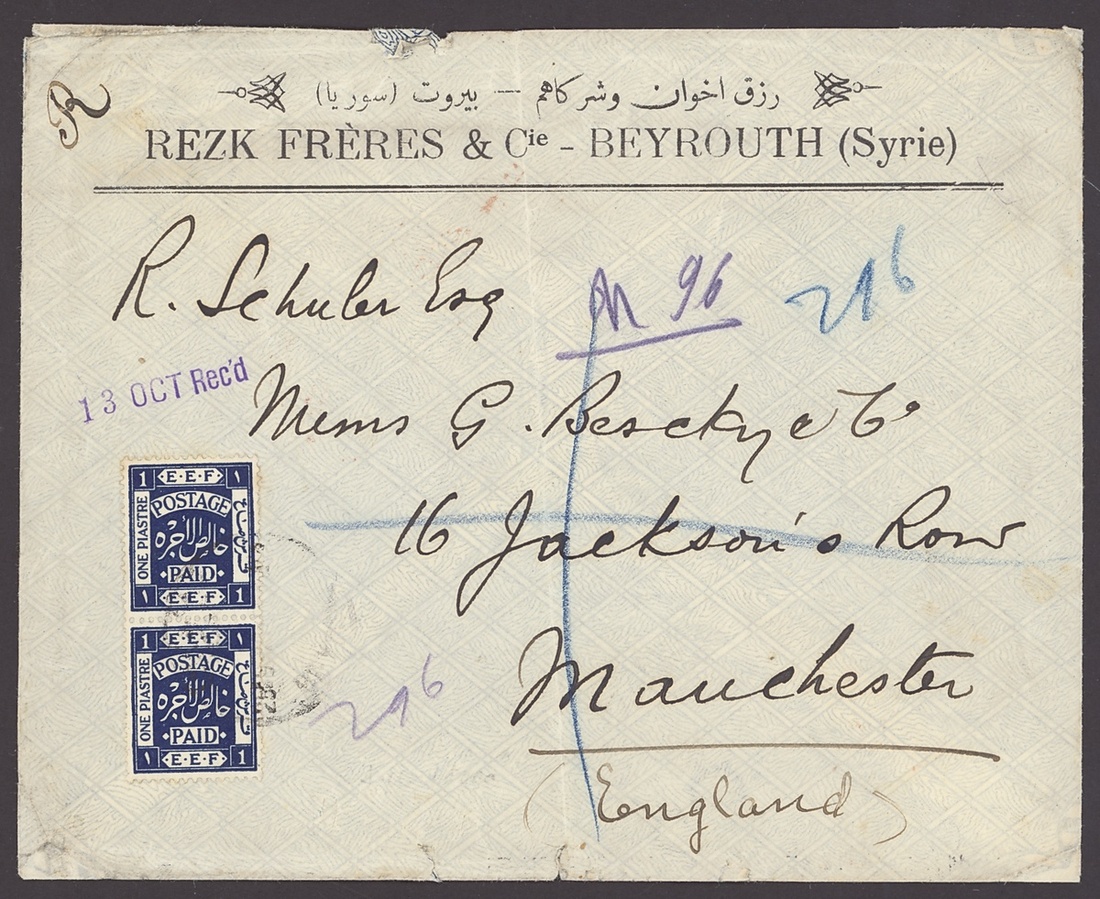 R
رزق اخوان وشركاهم — بيروت (سوريا)
REZK FRÈRES & Cie - BEYROUTH (Syrie)
R. Schuler Esq
96
216
13 OCT Rec'd
Messrs G. Bescky & Co
16 Jackson's Row
Manchester
(England)
216
1 E.E.F ١
POSTAGE
ONE PIASTRE
خالص الاجره
PAID
١ E.E.F 1
1 E.E.F ١
POSTAGE
ONE PIASTRE
خالص الاجره
PAID
١ E.E.F 1